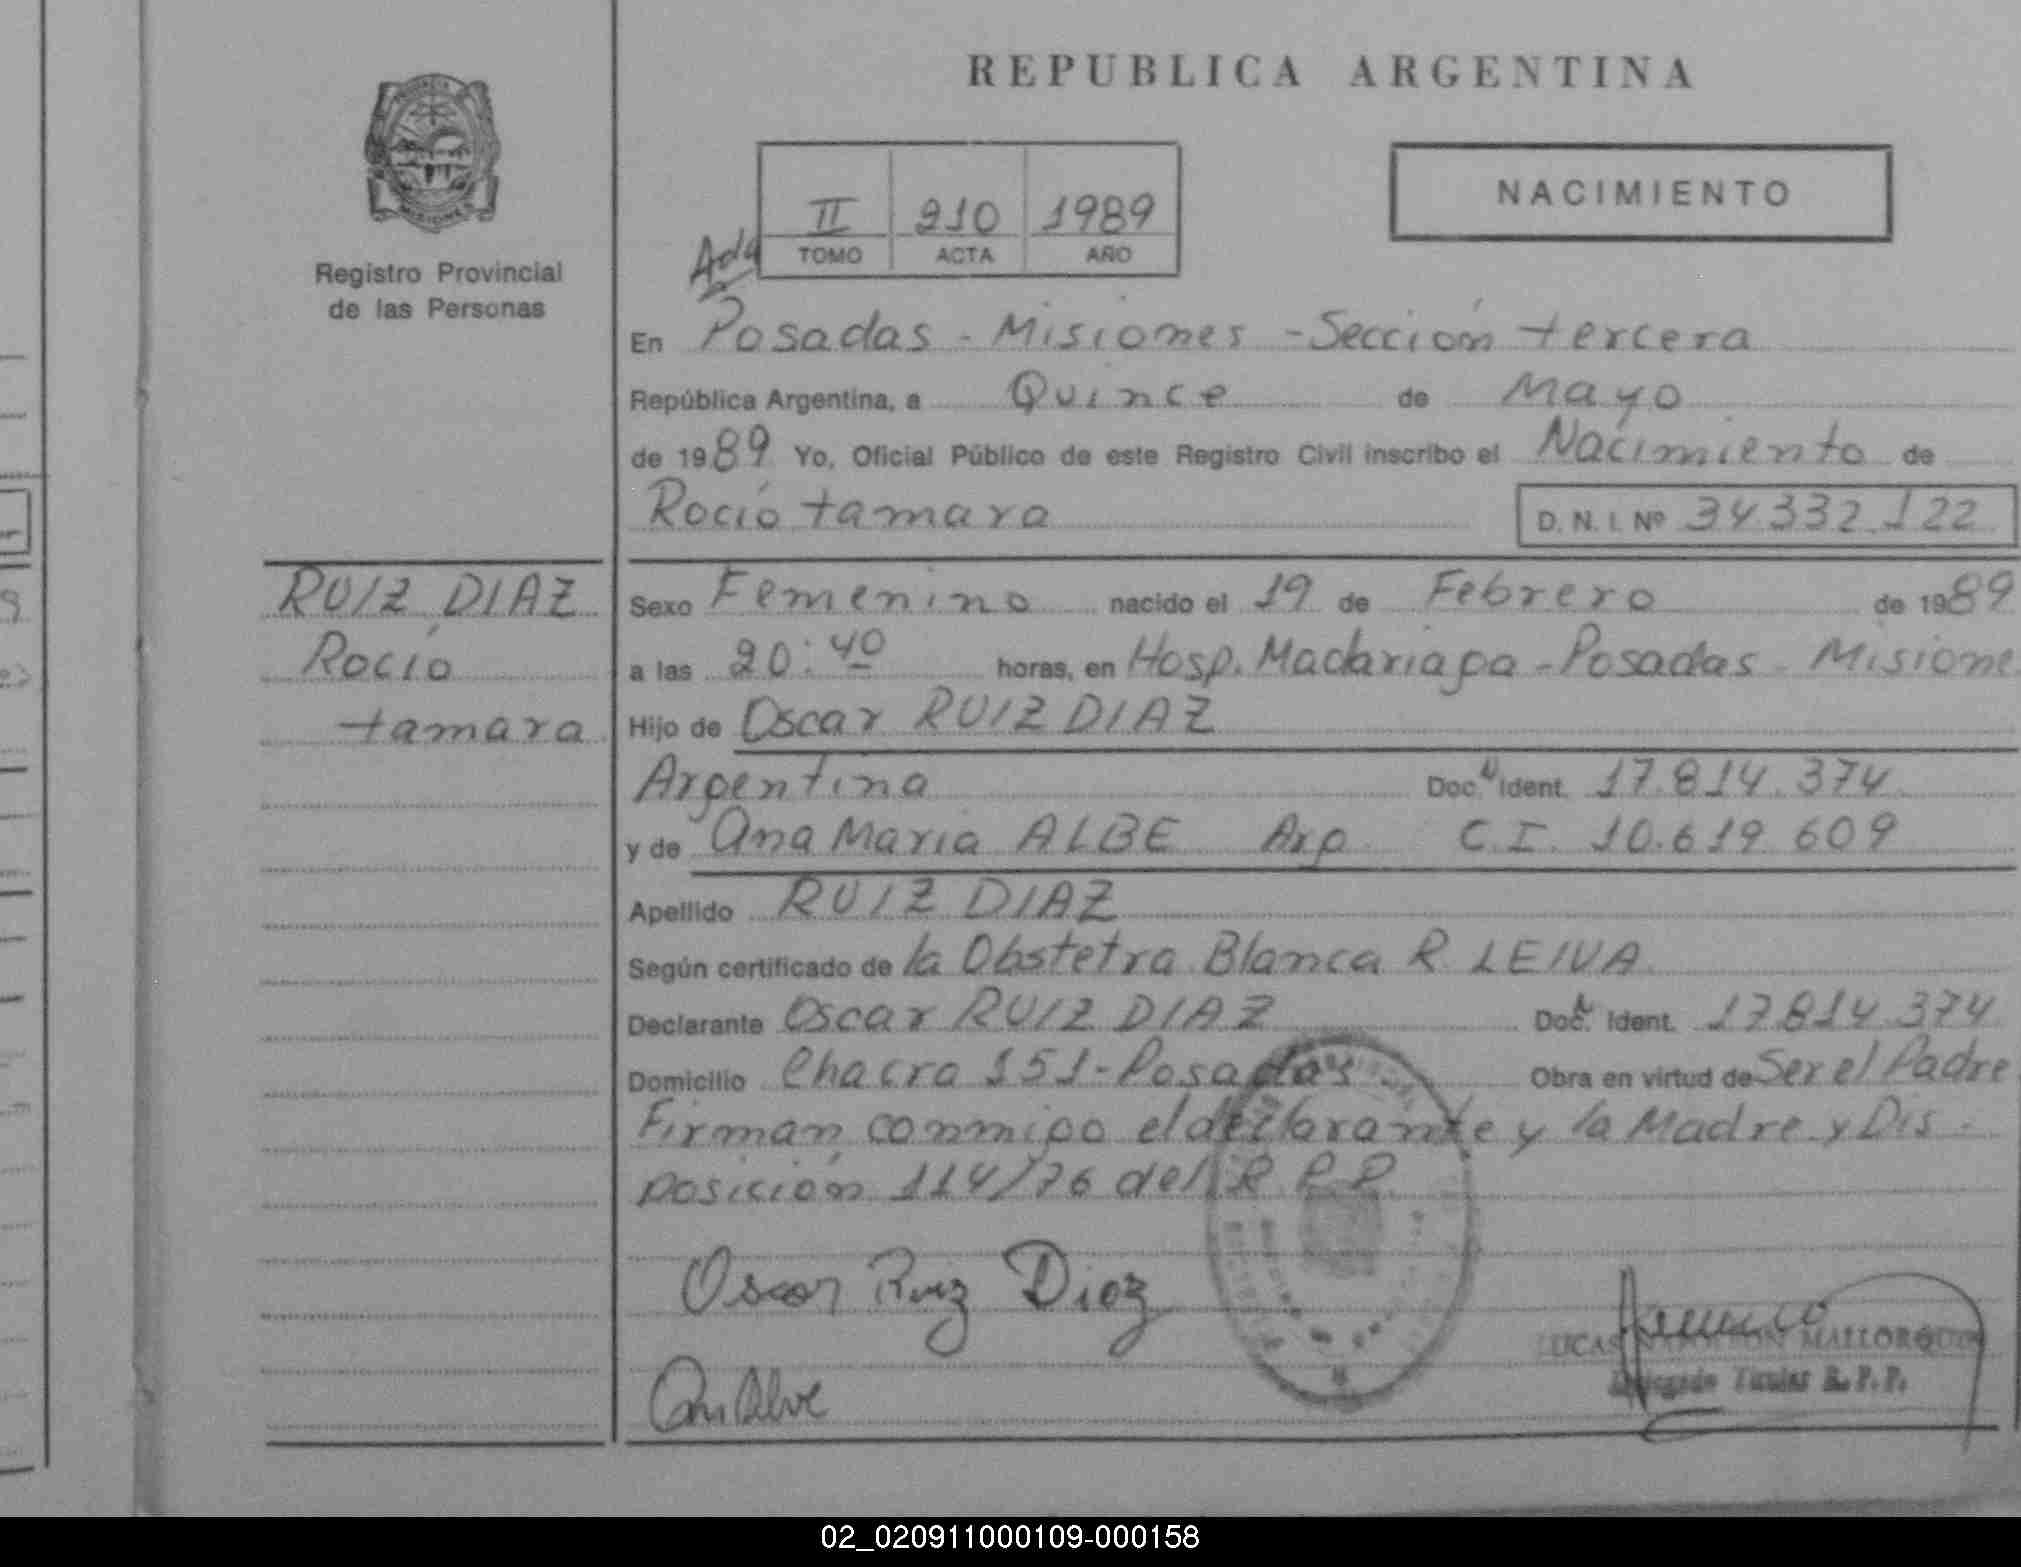 REPUBLICA ARGENTINA
NACIMIENTO
II 210 1989
TOMO ACTA AÑO
Registro Provincial
de las Personas
En Posadas - Misiones - Sección tercera
República Argentina, a Quince de Mayo
de 1989 Yo, Oficial Público de este Registro Civil inscribo el Nacimiento de
Rocío tamara D. N. I. Nº 34.332.122
RUIZ DIAZ
Rocío
tamara
Sexo Femenino nacido el 19 de Febrero de 1989
a las 20:40 horas, en Hosp. Madariaga - Posadas - Misione
Hijo de Oscar RUIZ DIAZ
Argentina Doc. Ident. 17.814.374
y de Ana Maria ALBE Arg C.I. 10.619.609
Apellido RUIZ DIAZ
Según certificado de la Obstetra Blanca R. LEIVA
Declarante Oscar RUIZ DIAZ Doc. Ident. 17814.374
Domicilio Chacra 151 - Posadas Obra en virtud de Ser el Padre
Firman conmigo el declarante y la Madre y Dis-
posición 114/76 del R.P.P.
Oscar Ruiz Diaz
LUCAS MALLORQUIN
Delegado Titular R. P. P.
02_020911000109-000158